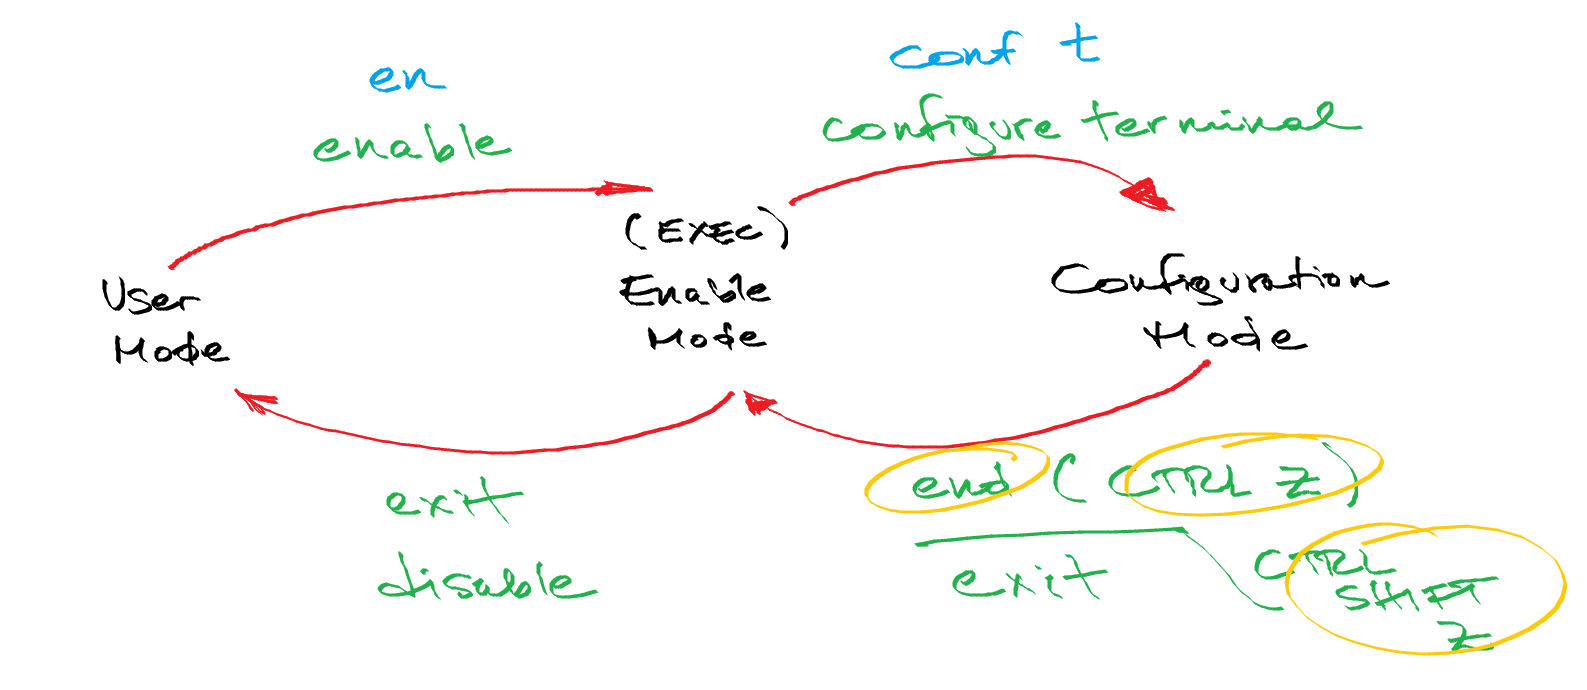 en
enable
conf t
configure terminal
User
Mode
(EXEC)
Enable
Mode
Configuration
Mode
exit
disable
end (CTRL Z)
exit
CTRL
SHIFT
Z